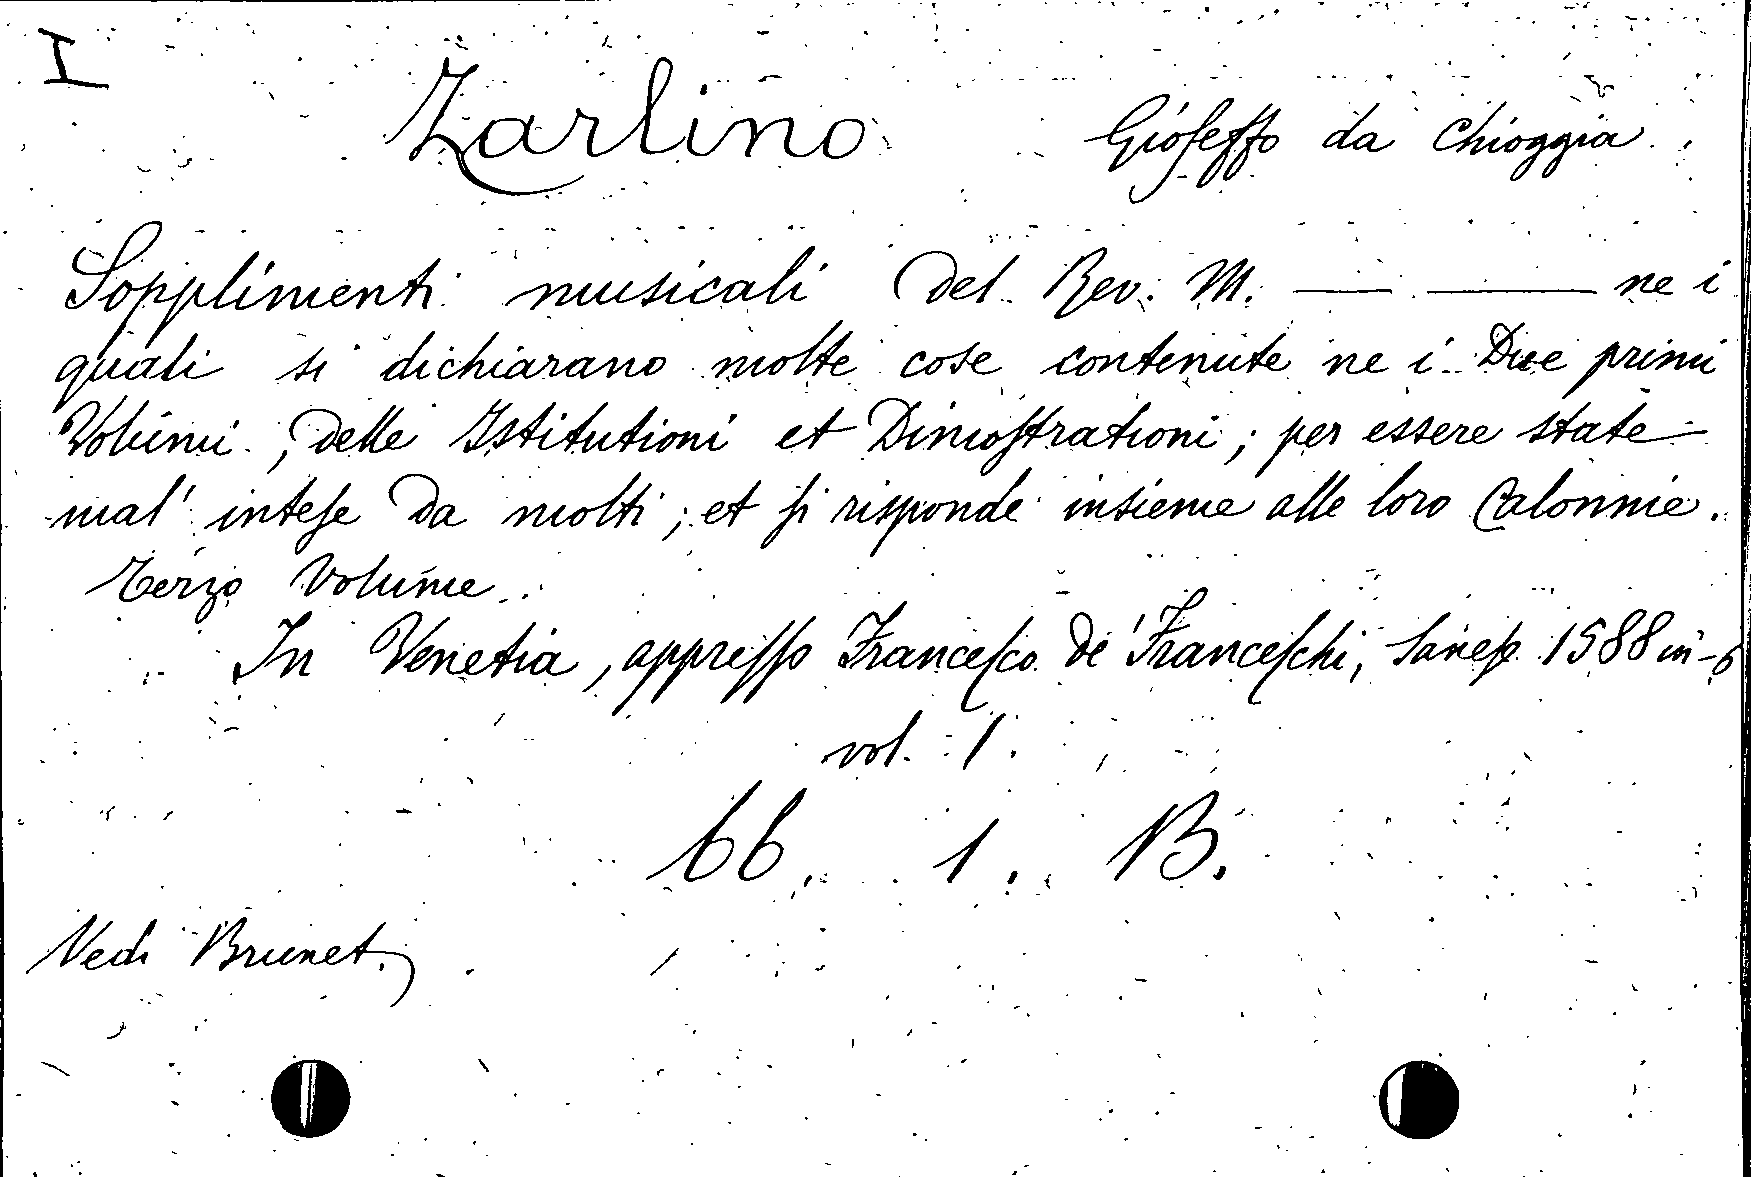 I
Zarlino Gioſeffo da Chioggia
Sopplimenti musicali del Rev. M. ——— ——— ne i
quali si dichiarano molte cose contenute ne i Due primi
Volumi, delle Istitutioni et Dimoſtrationi; per essere state
mal' inteſe da molti; et ſi risponde insieme alle loro Calonnie.
Terzo Volume.
In Venetia, appreſſo Franceſco de' Franceſchi, Saneſe 1588 in-
vol. 1.
66. 1. B.
Vedi Brunet.